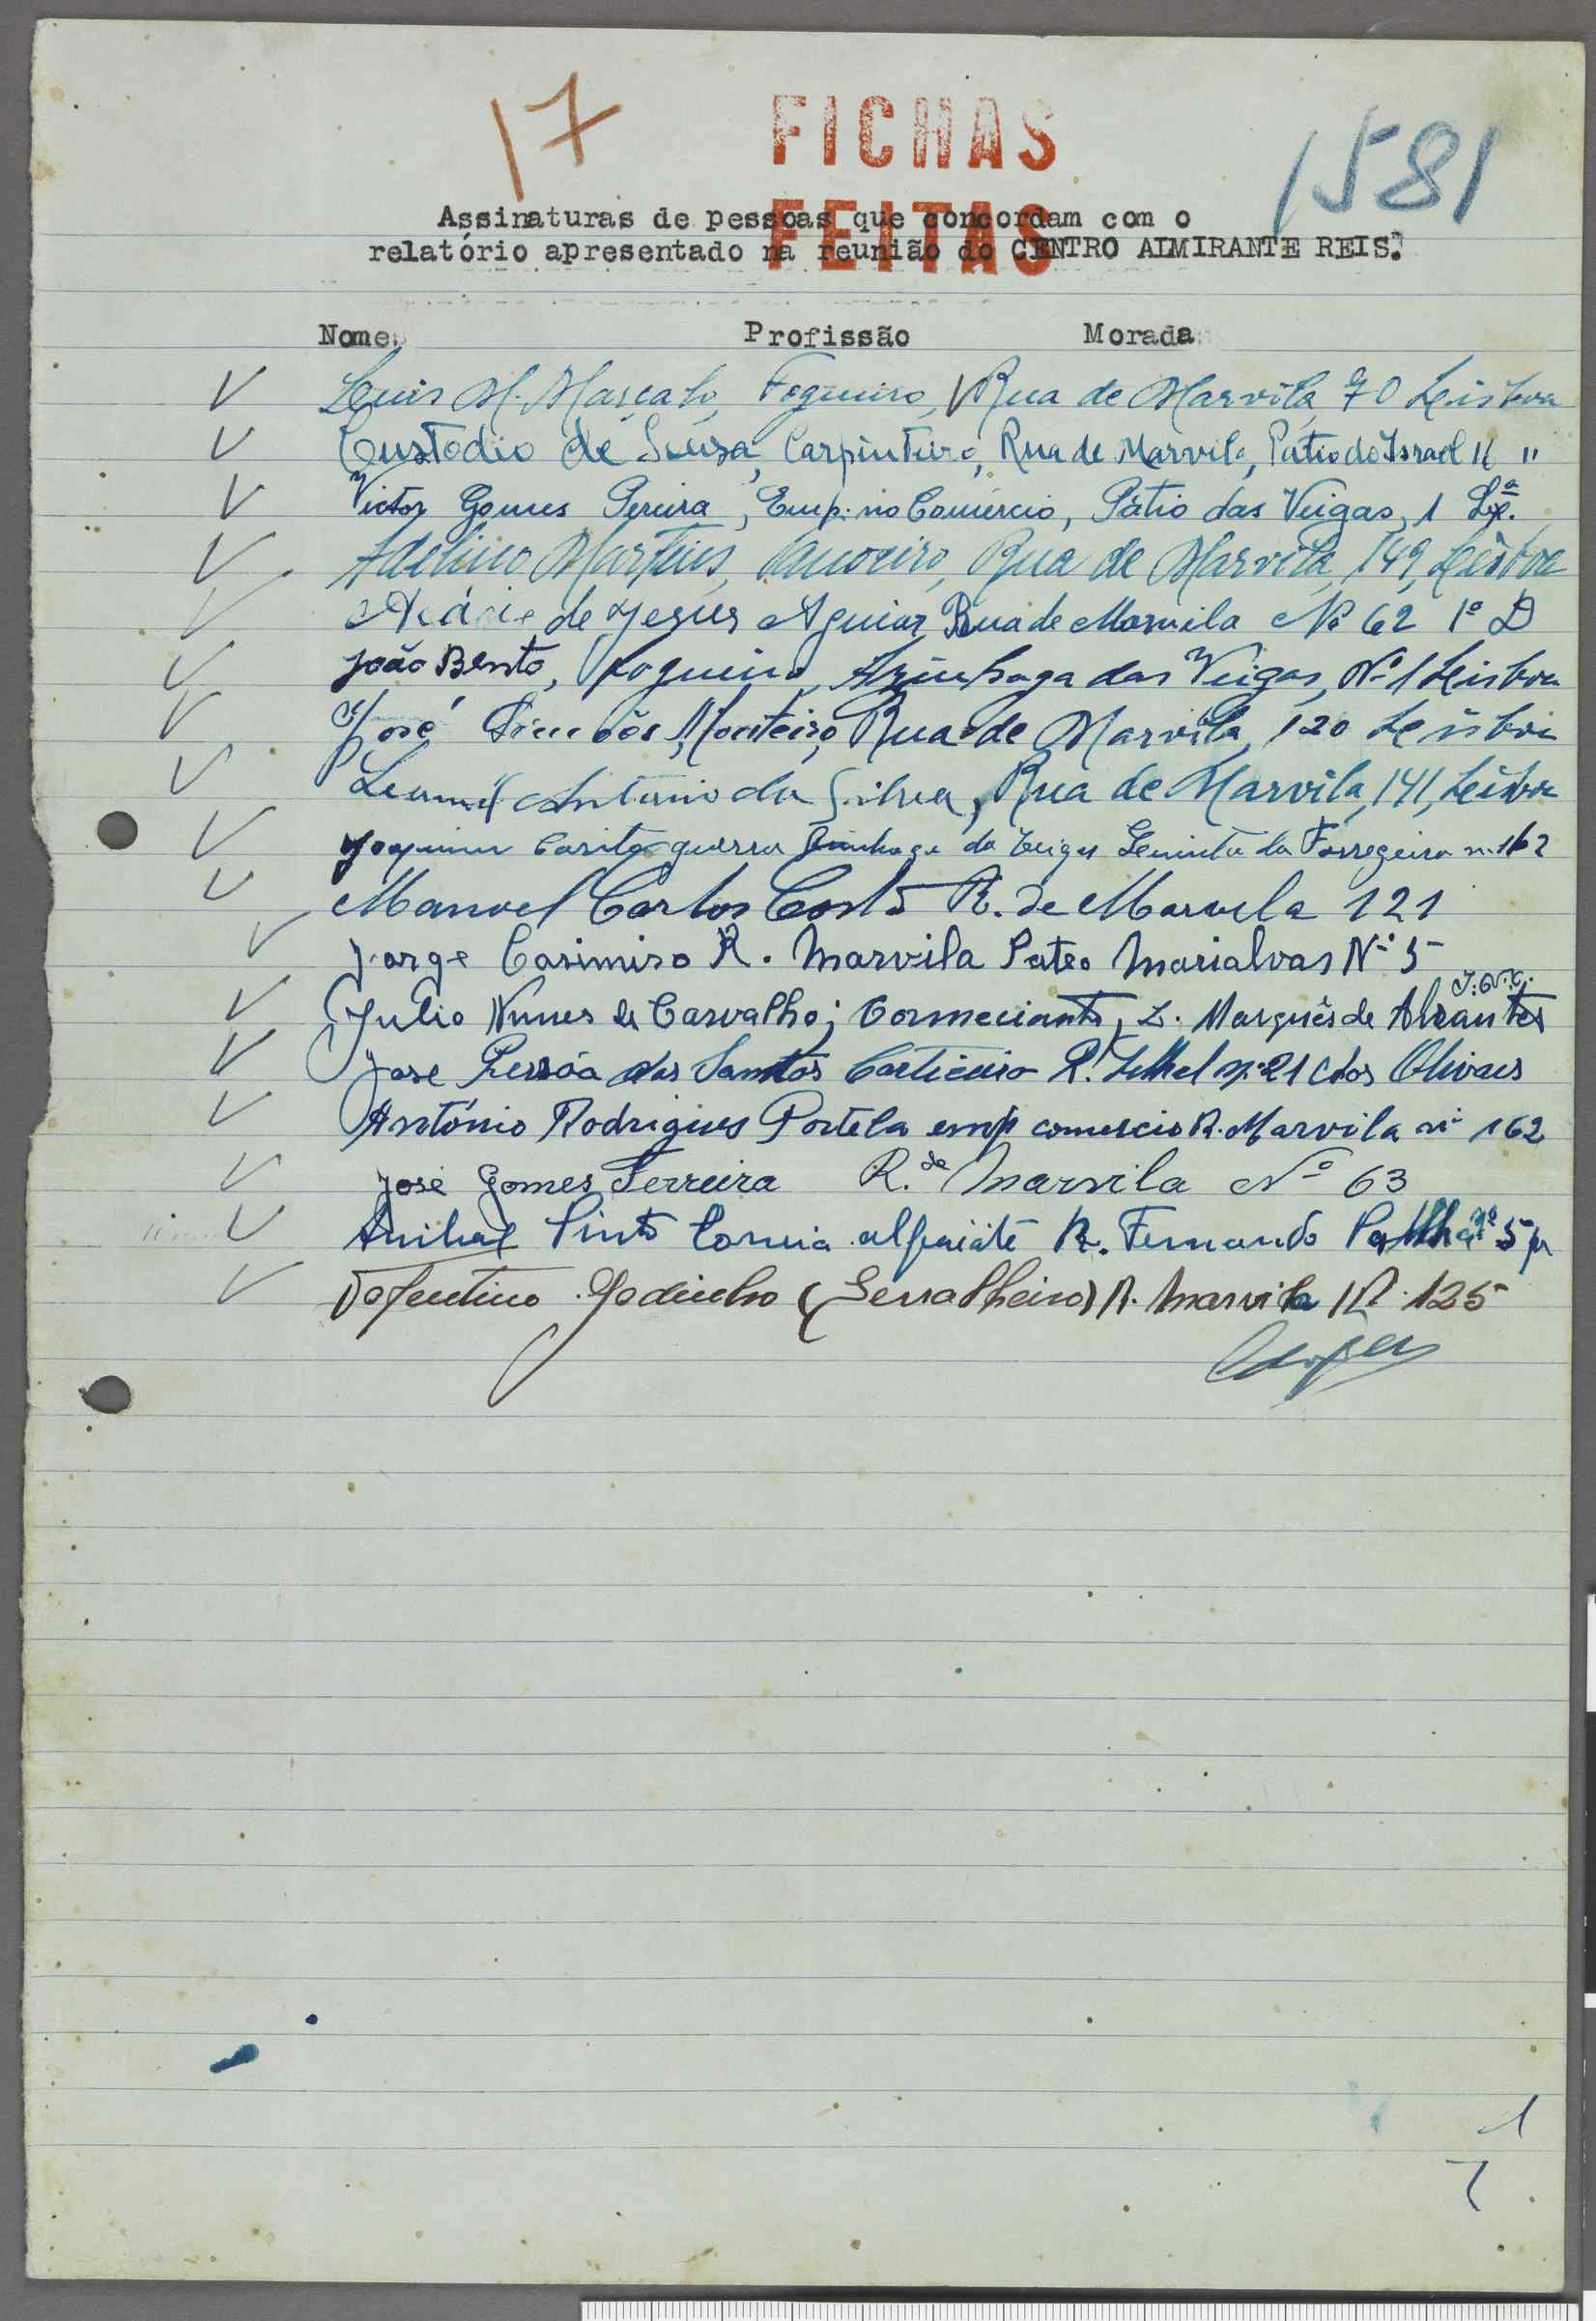 17
FICHAS
FEITAS
1581
Assinaturas de pessoas que concordam com o
relatório apresentado na reunião do CENTRO ALMIRANTE REIS.
Nome Profissão Morada
Luis M. Marçalo, Fogueiro, Rua de Marvila, 70 Lisboa
Custodio de Sousa, Carpinteiro, Rua de Marvila, Patio do Israel 11 "
Victor Gomes Pereira, Emp. no Comércio, Pátio das Veigas, 1 Lxª.
Adelino Martins, Tanoeiro, Rua de Marvila, 149, Lisboa
Acácio de Jesus Aguiar, Rua de Marvila Nº 62 1º D
João Bento, Fogueiro, Azinhaga das Veigas, Nº 1 Lisboa
José Simões Monteiro, Rua de Marvila, 120 Lisboa
Leonel Antonio da Silva, Rua de Marvila, 141, Lisboa
Joaquim guerra da Veigas da n. 162
Manuel Carlos Costa R. de Marvila 121
Jorge Casimiro R. Marvila Pateo Marialvas Nº 5
Julio Nunes de Carvalho, Comerciante, L. Marquês de Abrantes
José Pessôa dos Santos Corticeiro R. nº 21 C dos Olivaes
António Rodrigues Portela emp comercio R. Marvila nº 162
José Gomes Ferreira R. de Marvila Nº 63
Anibal Pinto Correia alfaiate R. Fernando Palha nº 5
Godinho (Serralheiro) R. Marvila Nº 125
17